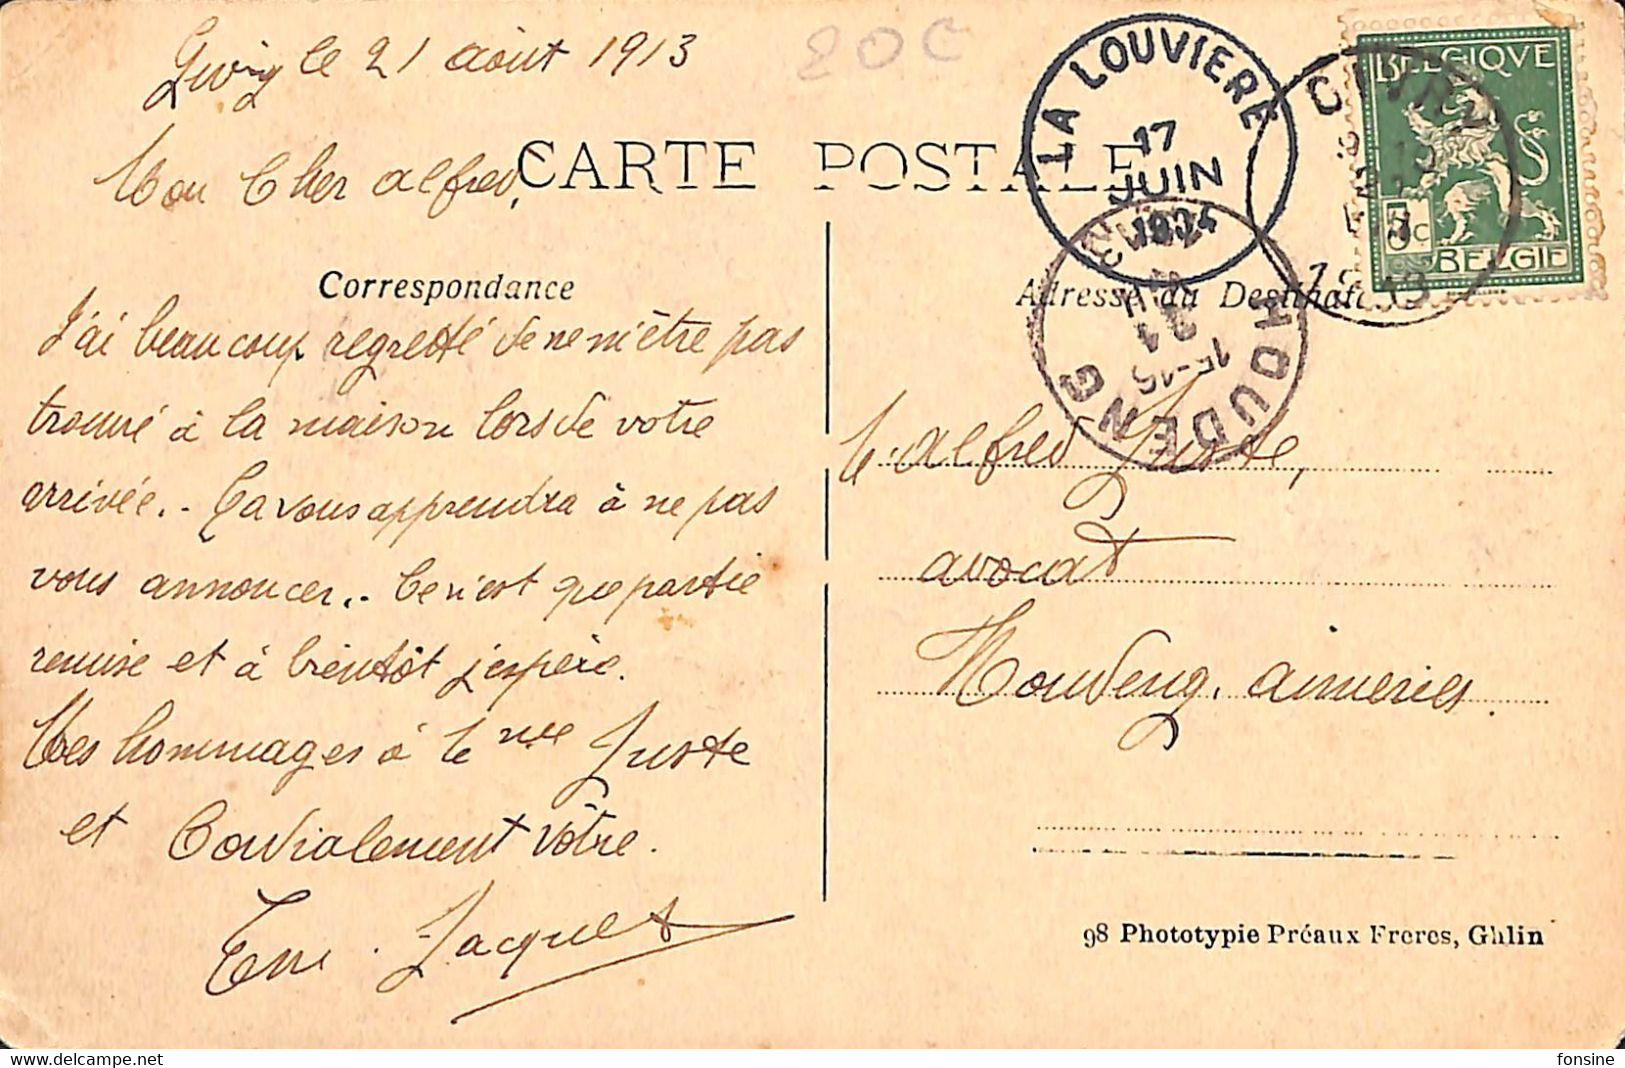 Givry le 21 août 1913
20 C
Mon Cher Alfred,
CARTE POSTALE
LA LOUVIERE
17
JUIN
GIVRY
BELGIQVE
5c
BELGIE
HOUDENG
15-16
21
Correspondance
Adresse du Destinat
J'ai beaucoup regretté de ne m'être pas
trouvé à la maison lors de votre
arrivée.. Ça vous apprendra à ne pas
vous annoncer.. Ce n'est que partie
remise et à bientôt j'espère.
Mes hommages à Mme Juste
et Cordialement vôtre.
Jacquet
Alfred Juste,
avocat
Houdeng. aimeries.
98 Phototypie Préaux Freres, Ghlin
fonsine